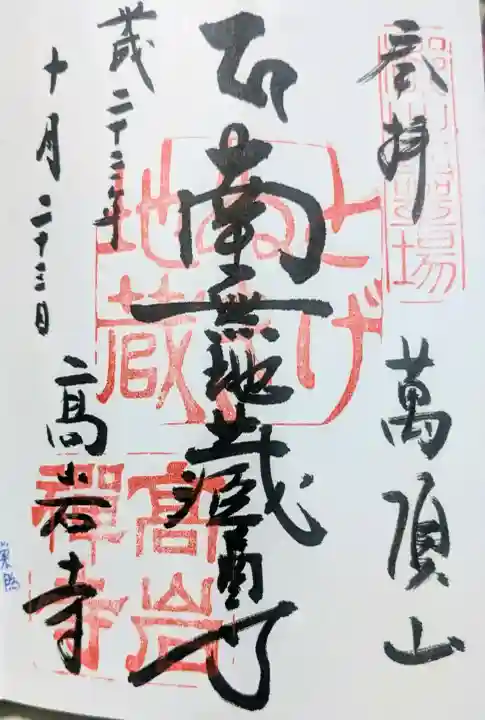 奉拝
萬頂山
南無地蔵尊
歳二十三年
十月二十三日
高岩寺
とげぬき地蔵
高岩禅寺
巣鴨